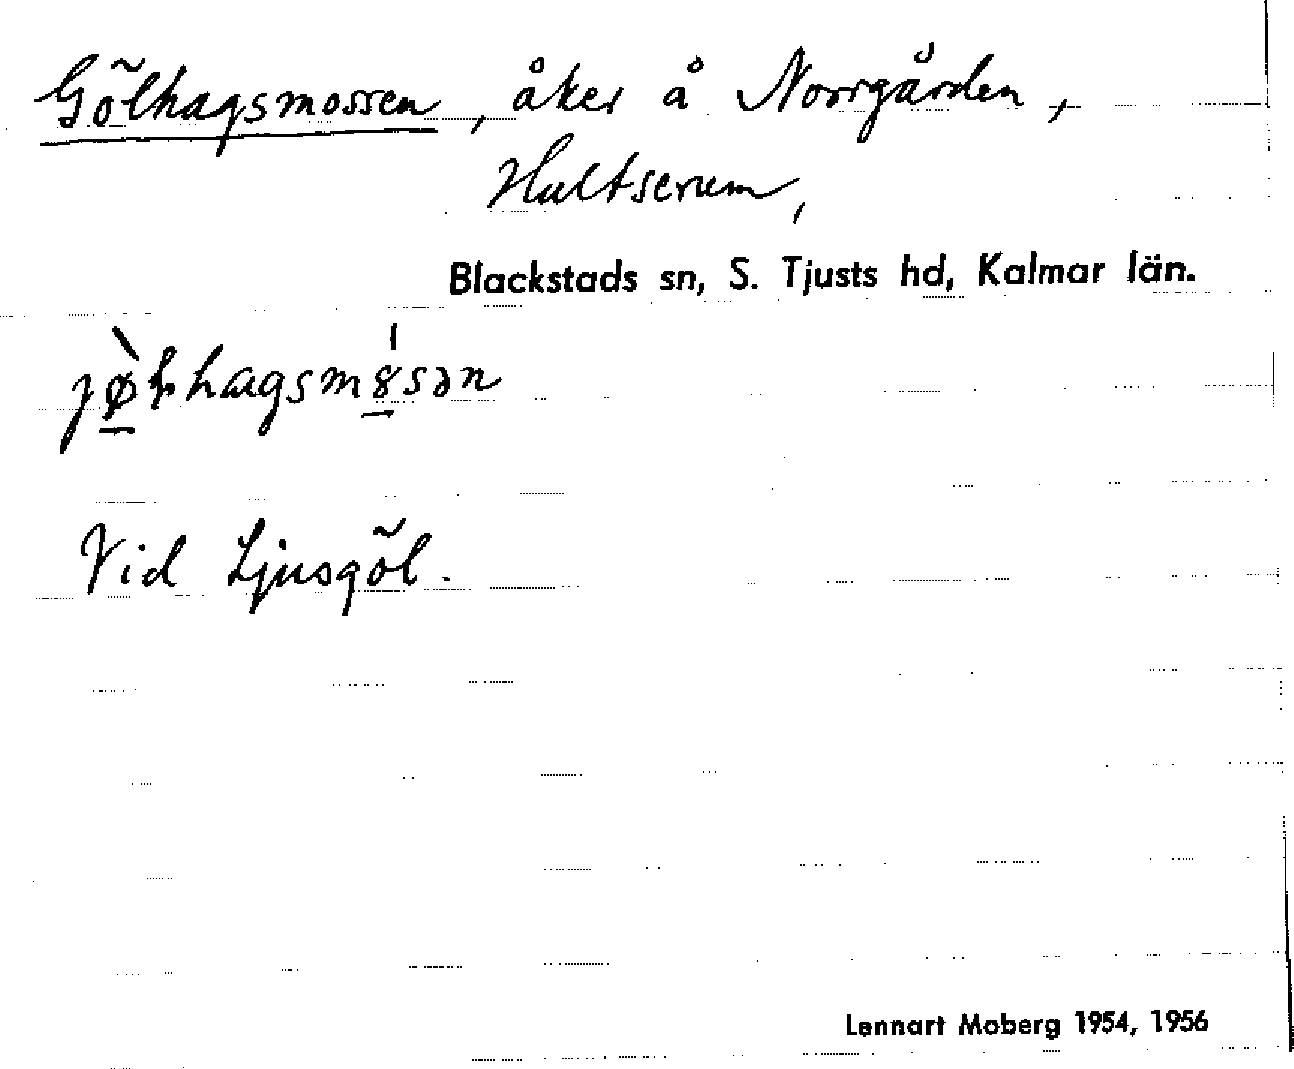 Gölhagsmossen, åker å Norrgården,
Hultserum,
Blackstads sn, S. Tjusts hd, Kalmar län.
jø̠̀ɫhagsmȣ̠́sən
Vid Ljusgöl.
Lennart Moberg 1954, 1956